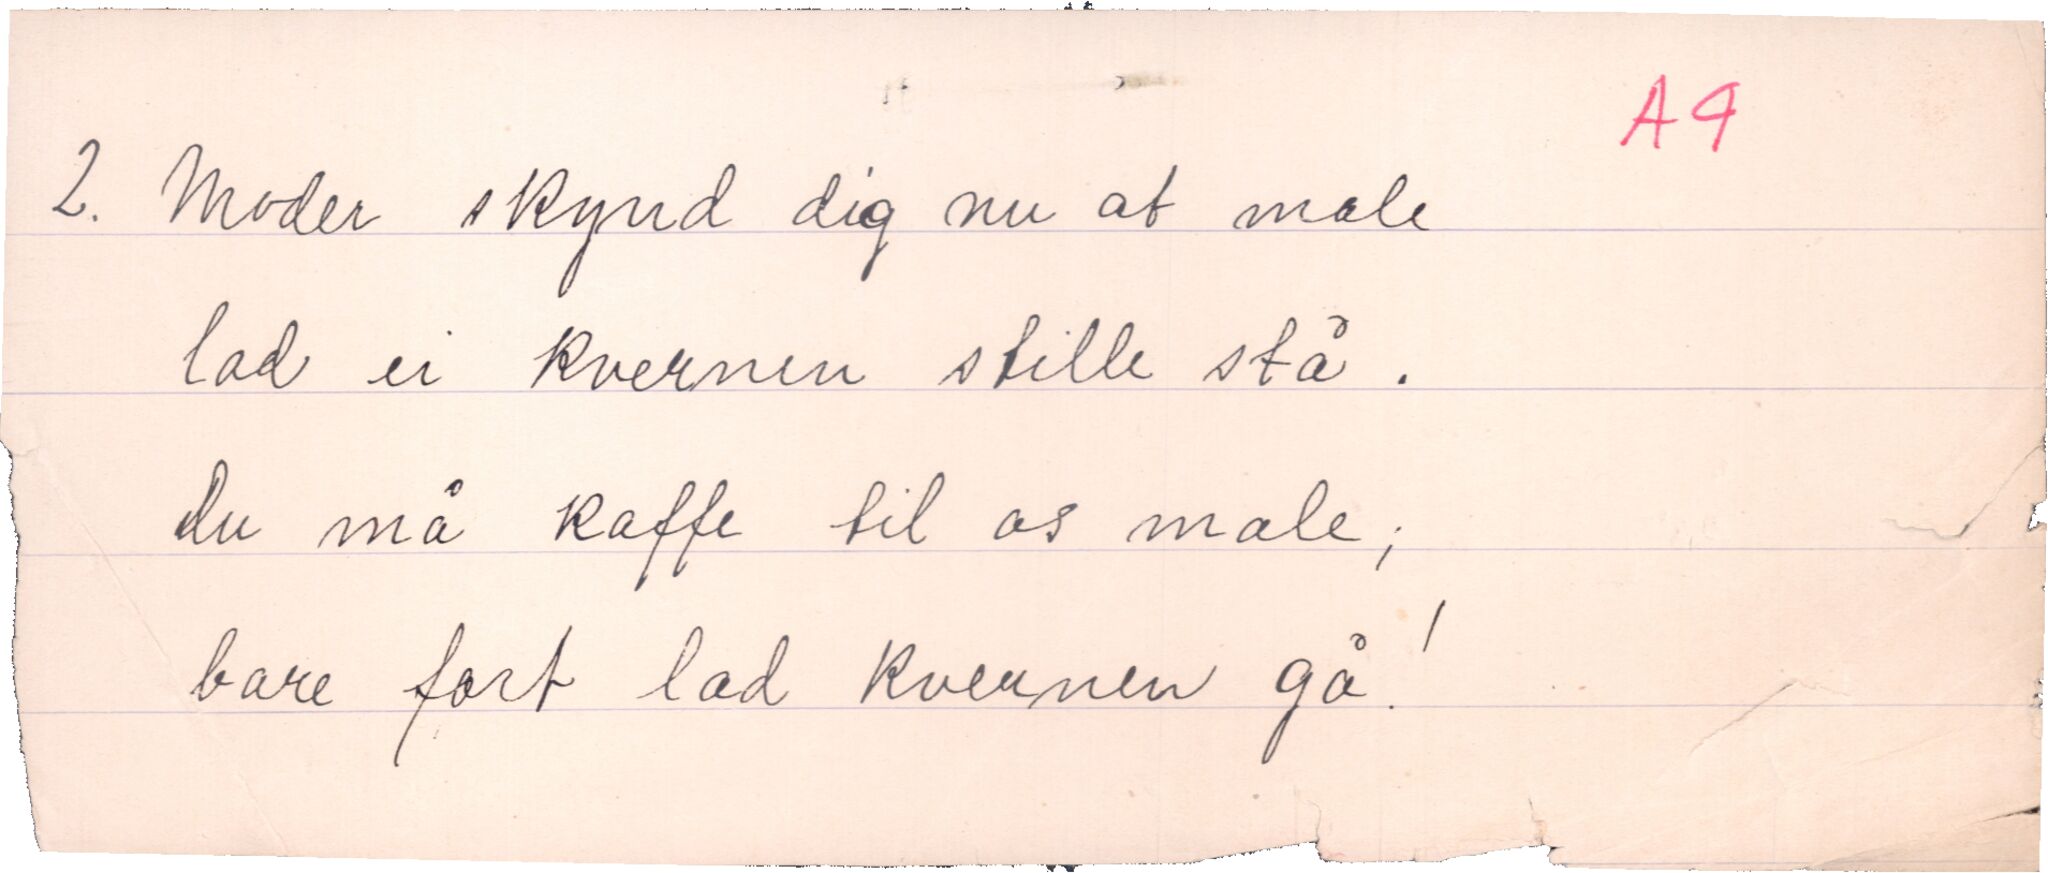 A 9
2. Moder skynd dig nu at male
lad ei kvernen stille stå.
Du må kaffe til os male;
bare fort lad kvernen gå!